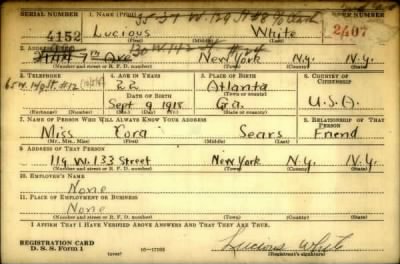 35-37 W. 129 St #8
SERIAL NUMBER 1. NAME (Print) ORDER NUMBER
4152 Lucious White 2407
(First) (Middle) (Last)
2. ADDRESS (Print) 130 W 142 St #24
7th Ave New York N.Y. N.Y.
(Number and street or R. F. D. number) (Town) (County) (State)
3. TELEPHONE 4. AGE IN YEARS 5. PLACE OF BIRTH 6. COUNTRY OF CITIZENSHIP
22 Atlanta
(Town or county)
DATE OF BIRTH
Sept 9 1918 Ga. U.S.A.
(Exchange) (No.) (Mo.) (Day) (Yr.) (State or country)
7. NAME OF PERSON WHO WILL ALWAYS KNOW YOUR ADDRESS 8. RELATIONSHIP OF THAT PERSON
Miss Cora Sears Friend
(Mr., Mrs., Miss) (First) (Middle) (Last)
9. ADDRESS OF THAT PERSON
119 W. 133 Street New York N.Y. N.Y.
(Number and street or R. F. D. number) (Town) (County) (State)
10. EMPLOYER'S NAME
None
11. PLACE OF EMPLOYMENT OR BUSINESS
None
(Number and street or R. F. D. number) (Town) (County) (State)
I AFFIRM THAT I HAVE VERIFIED ABOVE ANSWERS AND THAT THEY ARE TRUE.
REGISTRATION CARD
D. S. S. Form 1
(over) 16-17105
Lucious White
(Registrant's signature)